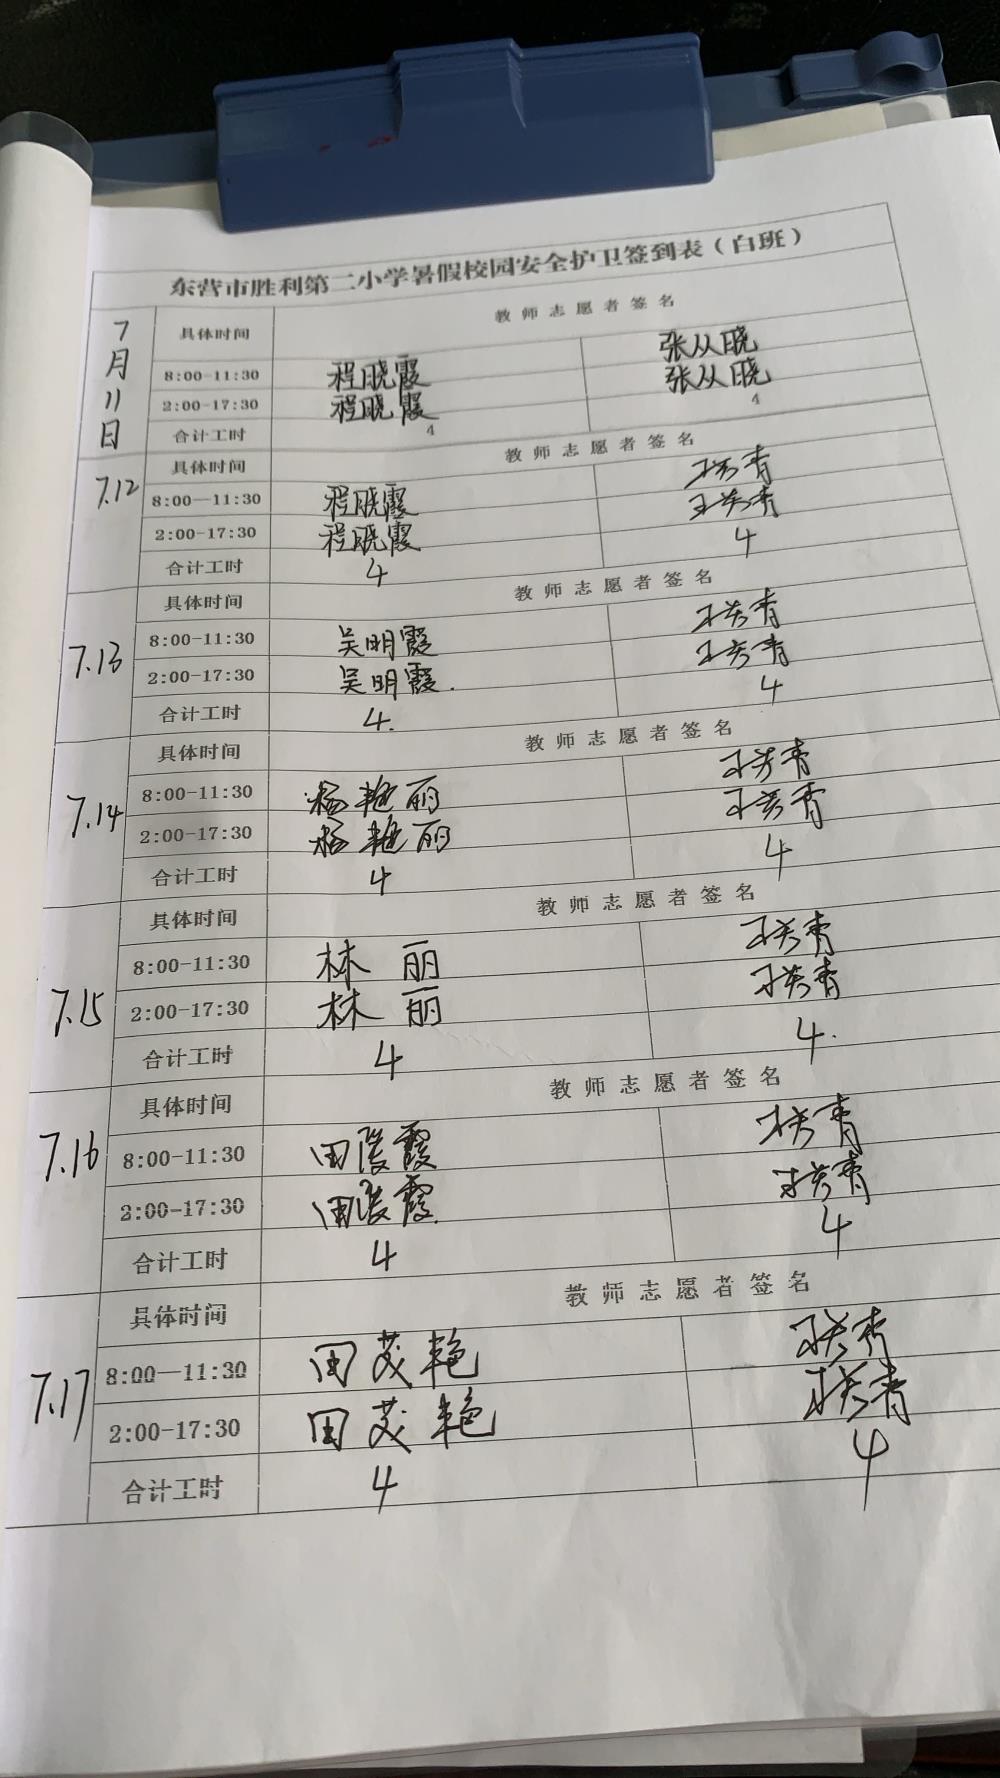 东营市胜利第二小学暑假校园安全护卫签到表（白班）
7月11日 具体时间 教师志愿者签名
8:00-11:30 程晓霞 张从晓
2:00-17:30 程晓霞 张从晓
合计工时 4 4
7.12 具体时间 教师志愿者签名
8:00—11:30 程晓霞 青
2:00-17:30 程晓霞 青
合计工时 4 4
7.13 具体时间 教师志愿者签名
8:00-11:30 吴明霞 青
2:00-17:30 吴明霞. 青
合计工时 4. 4
7.14 具体时间 教师志愿者签名
8:00-11:30 杨艳丽 青
2:00-17:30 杨艳丽 青
合计工时 4 4
7.15 具体时间 教师志愿者签名
8:00-11:30 林丽 青
2:00-17:30 林丽 青
合计工时 4 4.
7.16 具体时间 教师志愿者签名
8:00-11:30 田霞 青
2:00-17:30 田霞 青
合计工时 4 4
7.17 具体时间 教师志愿者签名
8:00—11:30 田茂艳 青
2:00-17:30 田茂艳 青
合计工时 4 4